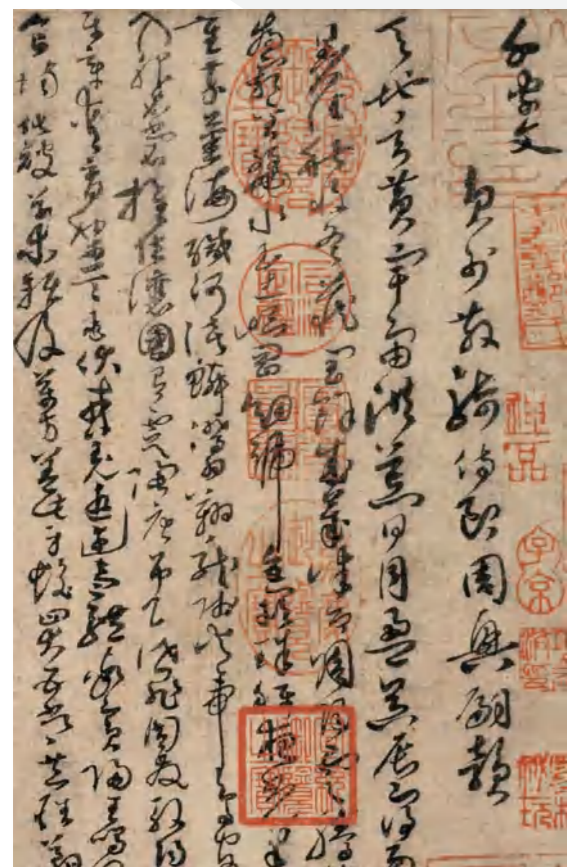 千字文
員外散騎侍郎周興嗣韻
天地玄黃宇宙洪荒日月盈昃辰宿列
暑往秋收冬藏閏餘成歲律呂調陽雲騰
為霜金生麗水玉出崑岡劍號巨闕珠稱夜光
重芥薑海鹹河淡鱗潛羽翔龍師火帝鳥官
乃服衣裳推位讓國有虞陶唐弔民伐罪周發殷湯
平章愛育黎首臣伏戎羌遐邇壹體率賓歸王鳴
食場化被草木賴及萬方蓋此身髮四大五常恭惟鞠